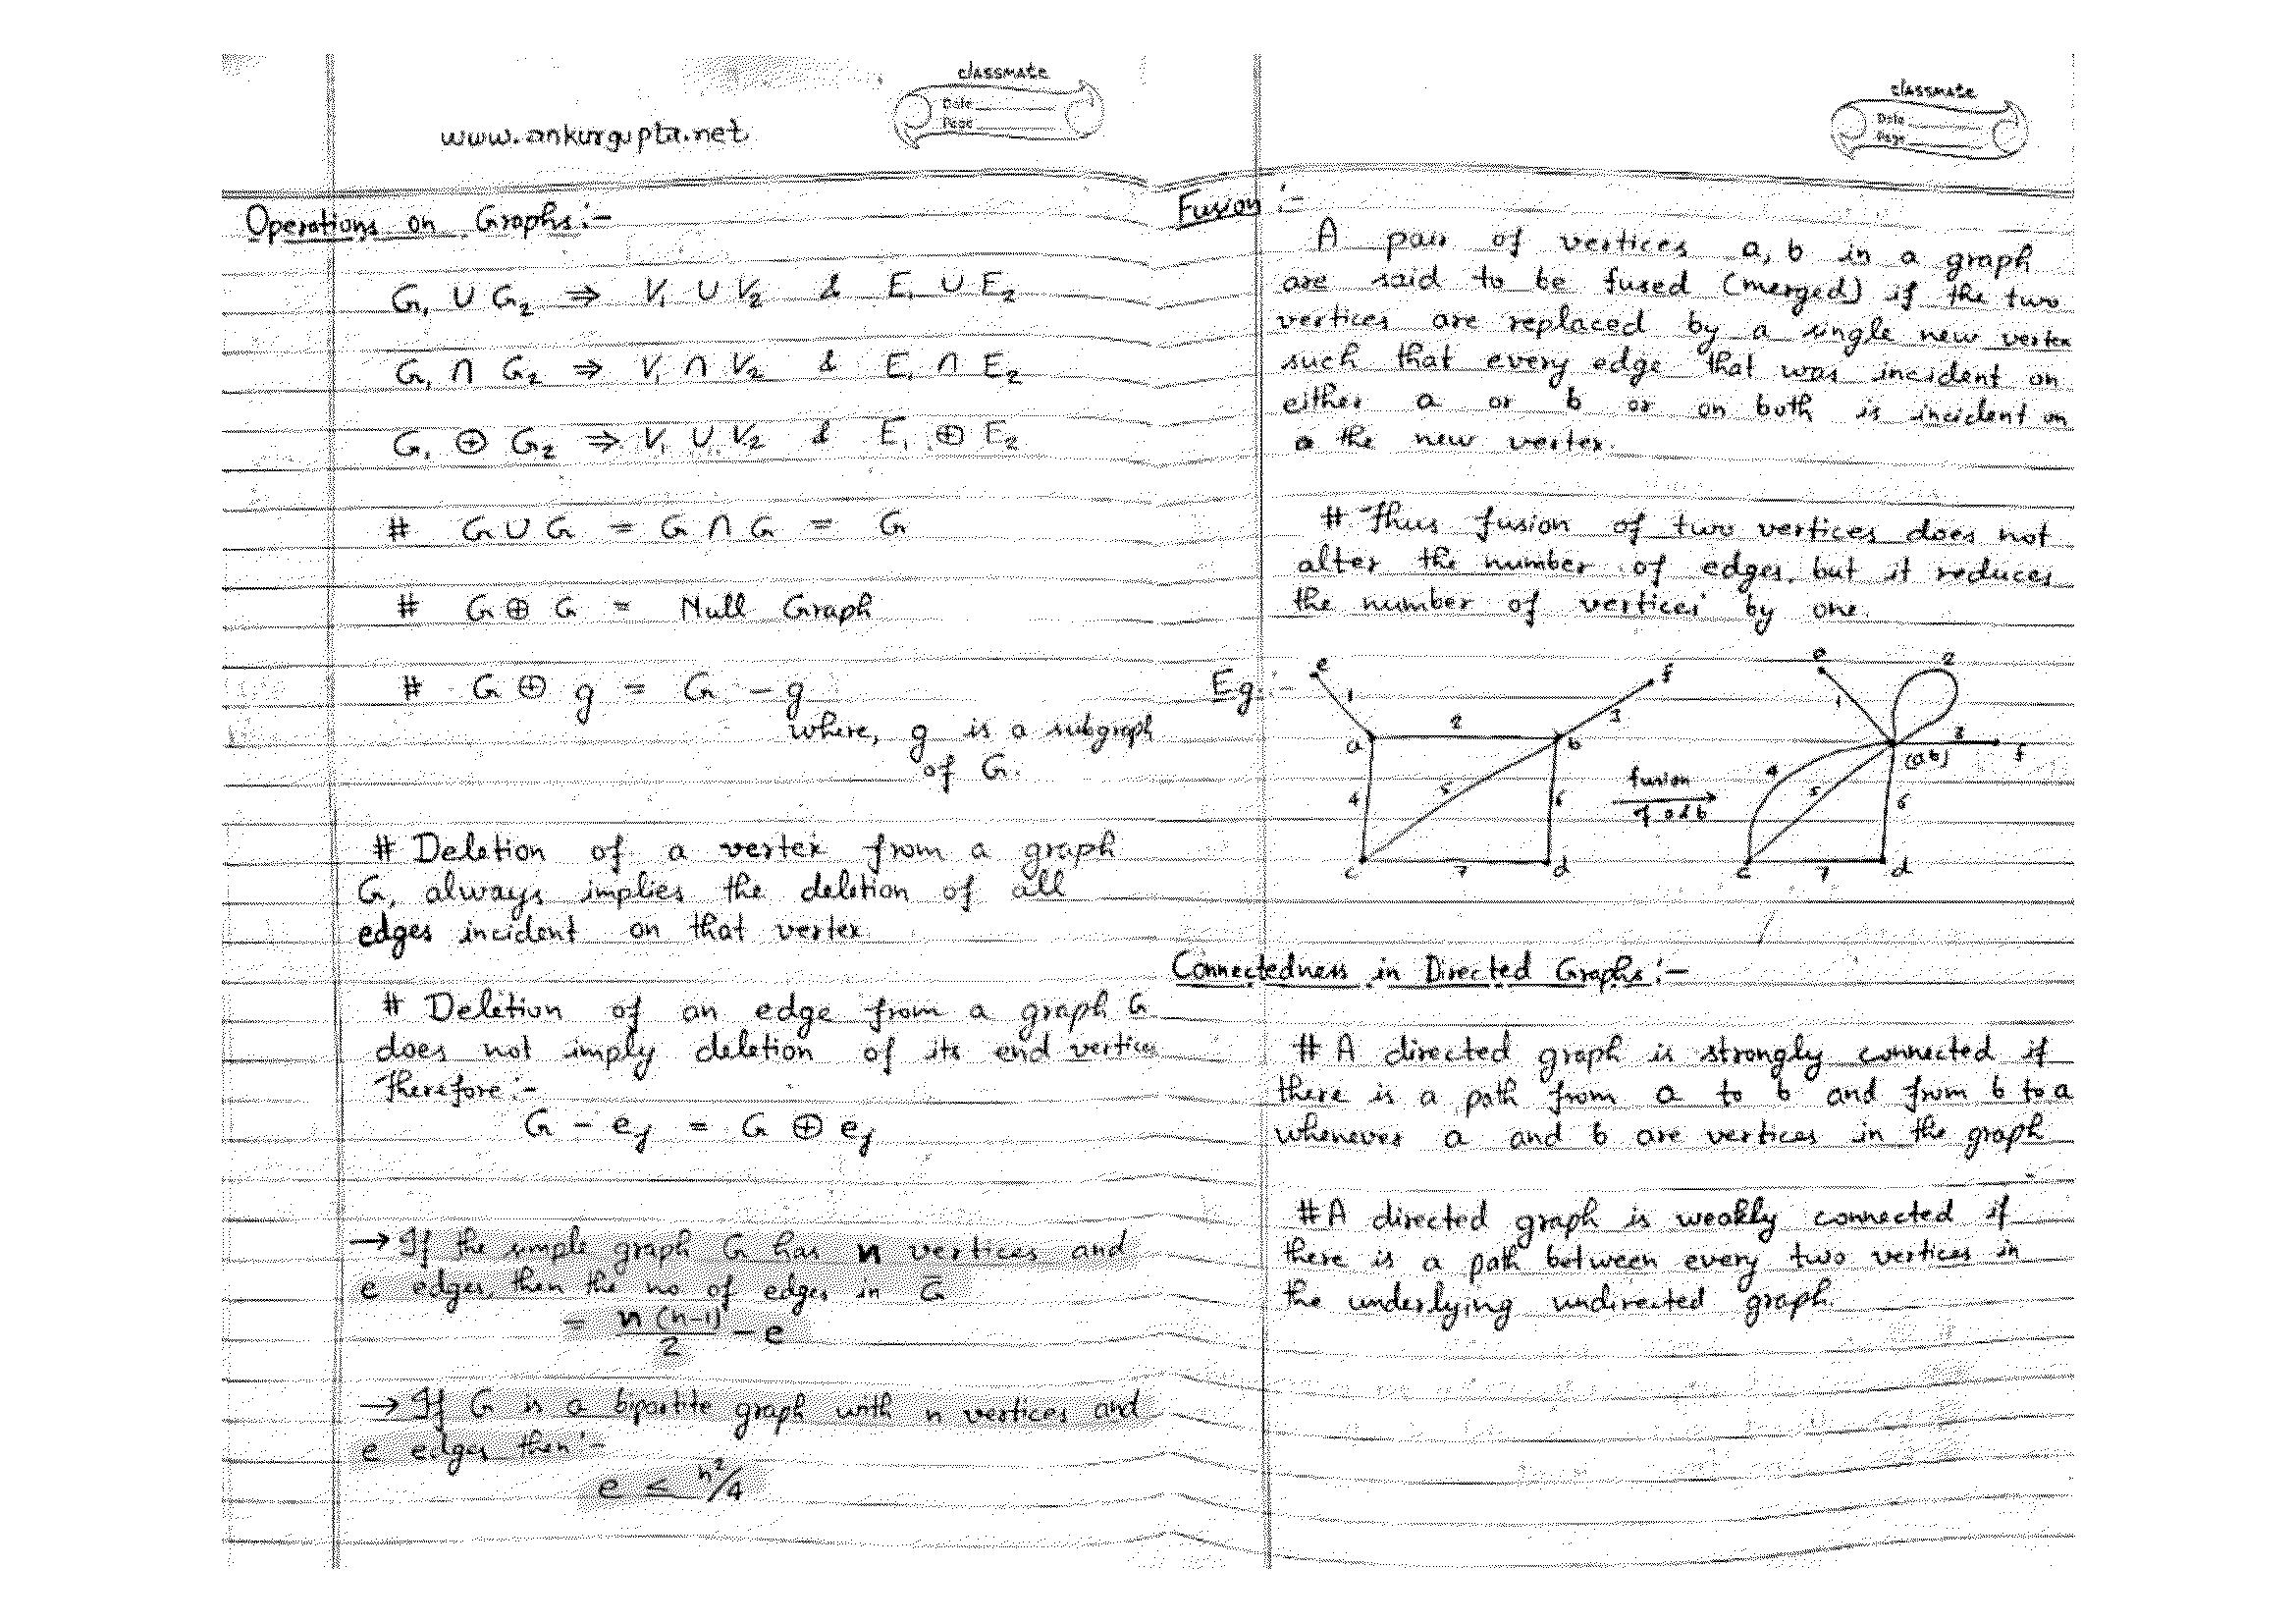 classmate
Date
Page
www.ankurgupta.net
Operations on Graphs:-
G₁ ∪ G₂ ⇒ V₁ ∪ V₂ & E₁ ∪ E₂
G₁ ∩ G₂ ⇒ V₁ ∩ V₂ & E₁ ∩ E₂
G₁ ⊕ G₂ ⇒ V₁ ∪ V₂ & E₁ ⊕ E₂
# G ∪ G = G ∩ G = G
# G ⊕ G = Null Graph
# G ⊕ g = G - g
where, g is a subgraph
of G.
# Deletion of a vertex from a graph
G, always implies the deletion of all
edges incident on that vertex.
# Deletion of an edge from a graph G
does not imply deletion of its end vertices
Therefore:-
G - eⱼ = G ⊕ eⱼ
→ If the simple graph G has n vertices and
e edges, then the no of edges in G̅
= n(n-1)/2 - e
→ If G is a bipartite graph with n vertices and
e edges then:-
e ≤ n²/4
classmate
Date
Page
Fusion :-
A pair of vertices a, b in a graph
are said to be fused (merged) if the two
vertices are replaced by a single new vertex
such that every edge that was incident on
either a or b or on both is incident on
the new vertex.
# Thus fusion of two vertices does not
alter the number of edges, but it reduces
the number of vertices by one.
Eg:-
e f
1 2 3
a b
4 5 6
c 7 d
fusion
of a & b
e 2
1 3
(ab) f
4 5 6
c 7 d
Connectedness in Directed Graphs:-
# A directed graph is strongly connected if
there is a path from a to b and from b to a
whenever a and b are vertices in the graph
# A directed graph is weakly connected if
there is a path between every two vertices in
the underlying undirected graph.